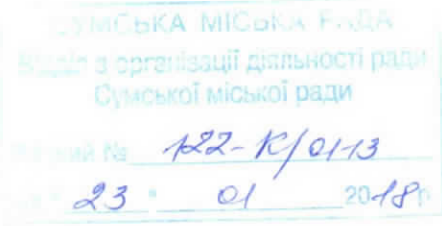 СУМСЬКА МІСЬКА РАДА
Відділ з організації діяльності ради
Сумської міської ради
№ 122-К/01-13
" 23 " 01 2018р